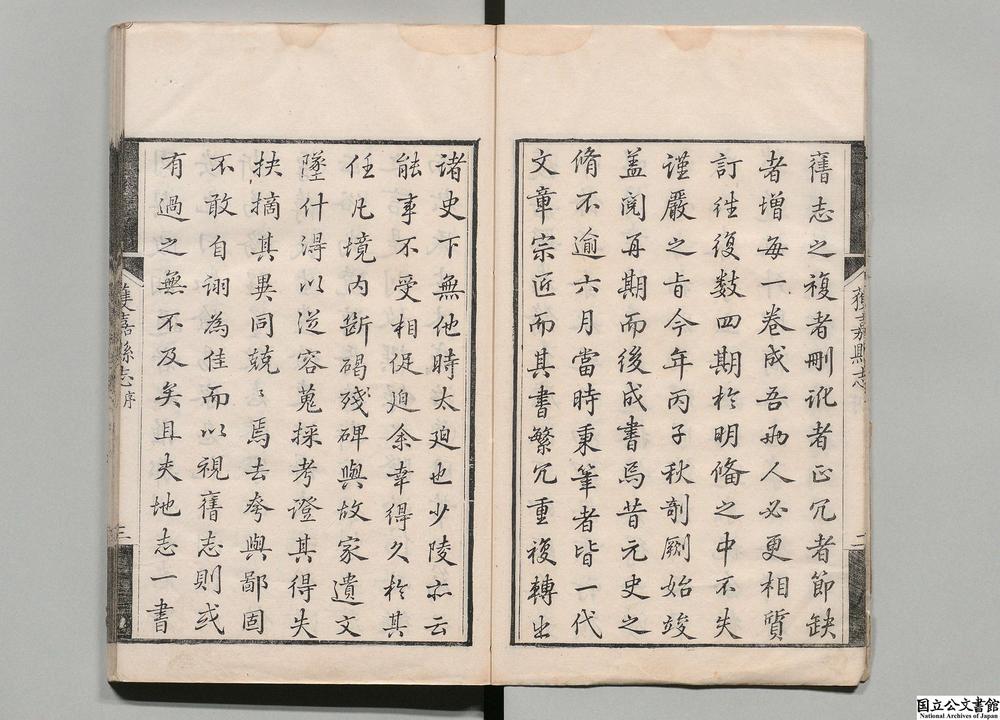 舊志之複者刪訛者正冗者節缺
者增每一卷成吾兩人必更相質
訂往復数四期於明俻之中不失
謹嚴之旨今年丙子秋剞劂始竣
盖閲再期而後成書焉昔元史之
脩不逾六月當時秉筆者皆一代
文章宗匠而其書繁冗重複轉出
獲嘉縣志
二
獲嘉縣志序
三
诸史下無他時太迫也少陵亦云
能事不受相促迫余幸得久於其
任凡境内斷碣殘碑與故家遺文
墜什得以從容蒐採考證其得失
抉摘其異同兢〻焉去夸與鄙固
不敢自詡為佳而以視舊志則或
有過之無不及矣且夫地志一書
国立公文書館
National Archives of Japan